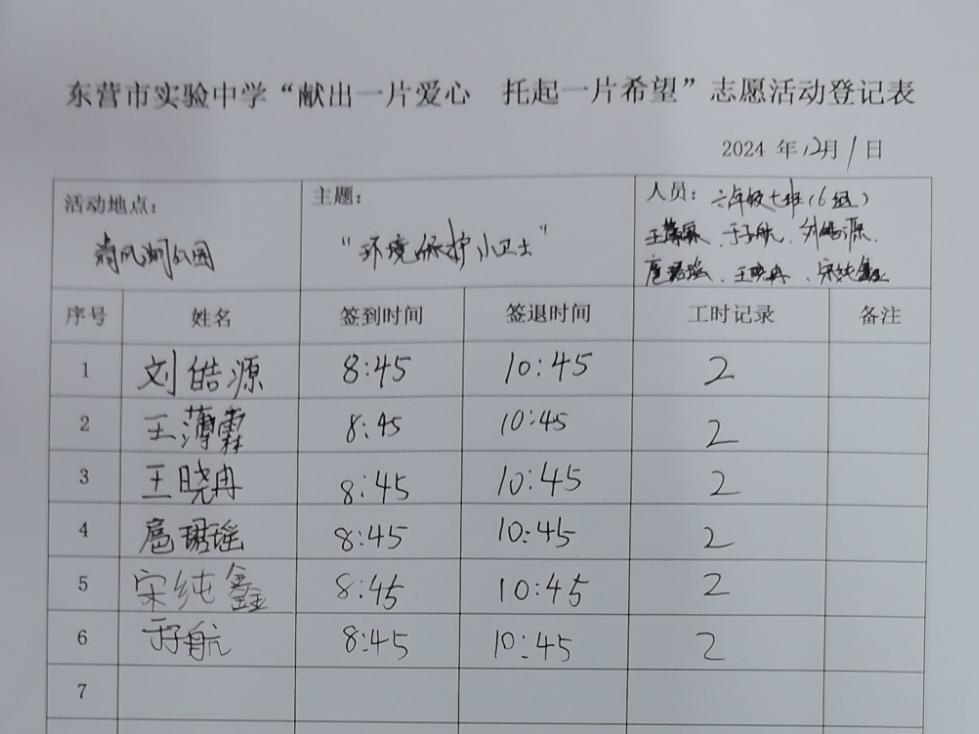 东营市实验中学“献出一片爱心 托起一片希望”志愿活动登记表
2024 年12月1日
活动地点:
清风湖公园
主题:
“环境保护小卫士”
人员: 六年级七班(6组)
王薄霖、于子航、刘皓源、
扈珺瑶、王晓冉、宋纯鑫
序号 姓名 签到时间 签退时间 工时记录 备注
1 刘皓源 8:45 10:45 2
2 王薄霖 8:45 10:45 2
3 王晓冉 8:45 10:45 2
4 扈珺瑶 8:45 10:45 2
5 宋纯鑫 8:45 10:45 2
6 于子航 8:45 10:45 2
7